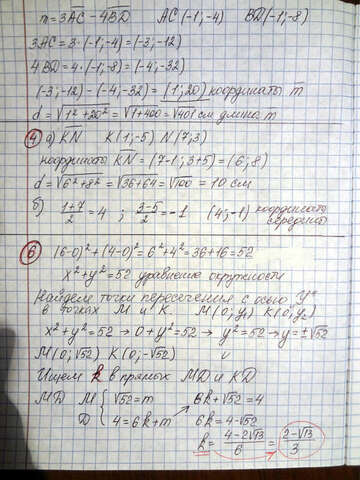 m̄ = 3AC̄ - 4BD̄   AC (-1;-4)   BD (-1;-8)
3AC = 3·(-1;-4) = (-3;-12)
4BD = 4·(-1;-8) = (-4;-32)
(-3;-12) - (-4;-32) = (1;20) координаты m̄
d = √1²+20² = √1+400 = √401 см длина m̄
④ а) KN̄   K(1;-5) N(7;3)
координаты KN̄ = (7-1;3+5) = (6;8)
d = √6²+8² = √36+64 = √100 = 10 см
б) (1+7)/2 = 4 ; (3-5)/2 = -1   (4;-1) координаты середины
⑥ (6-0)²+(4-0)² = 6²+4² = 36+16 = 52
x²+y² = 52 уравнение окружности
Найдем точки пересечения с осью У
в точках М и К. М(0;y₁) К(0;y₂)
x²+y² = 52 → 0+y² = 52 → y² = 52 → y = ±√52
М(0;√52) К(0;-√52)
Ищем k в прямых МD и КD
МD М { √52 = m   6k+√52 = 4
D { 4 = 6k+m   6k = 4-√52
k = (4-2√13)/6 = (2-√13)/3